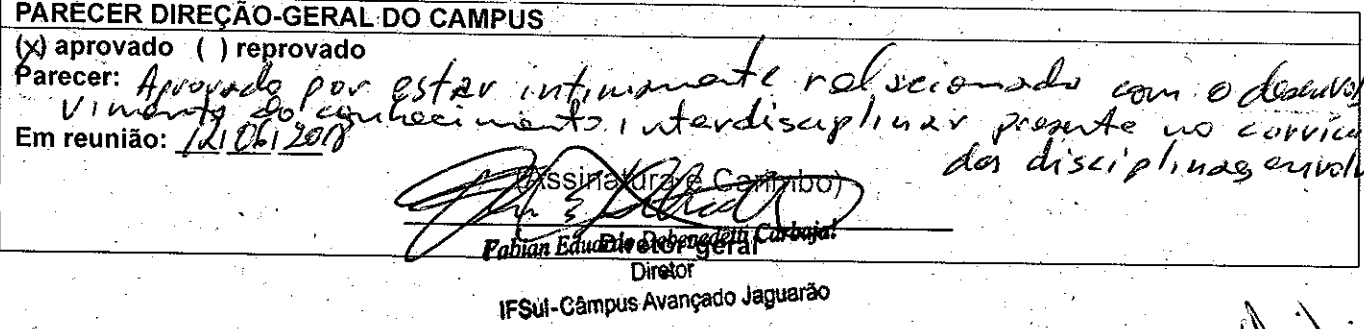 PARECER DIREÇÃO-GERAL DO CAMPUS
(x) aprovado ( ) reprovado
Parecer: Aprovado por estar intimamente relacionado com o desenvol
vimento do conhecimento interdisciplinar presente no curricu
das disciplinas envol
Em reunião: 12/06/2018
(Assinatura e Carimbo)
Fabian Eduardo Debenedetti Carbajal
Diretor-geral
Diretor
IFSul-Câmpus Avançado Jaguarão